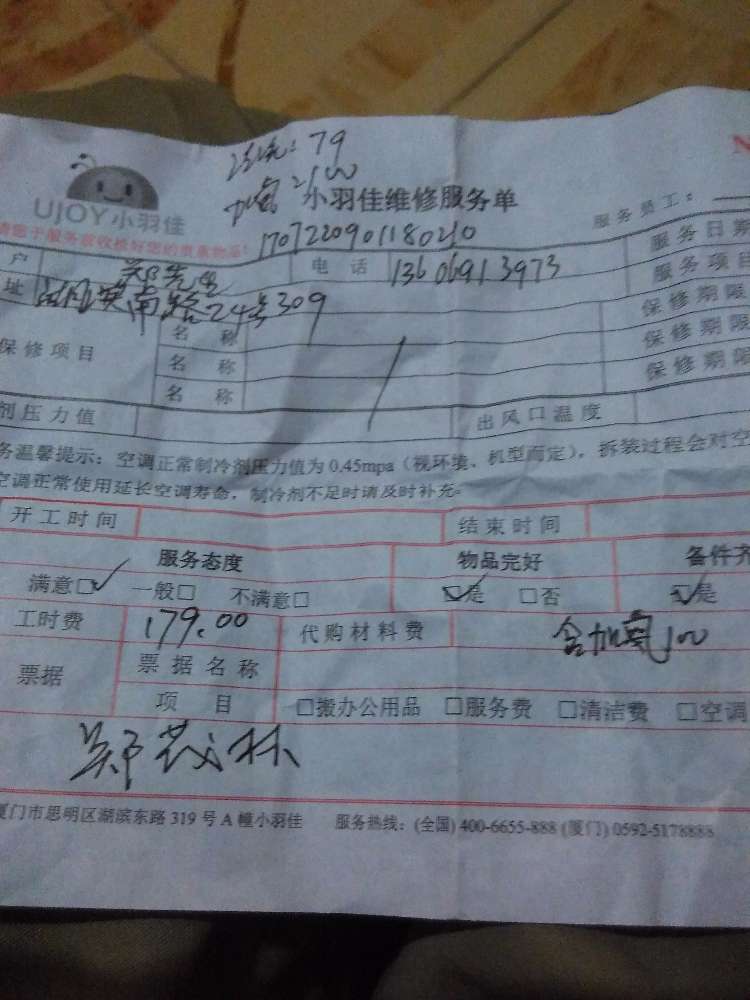 清洗：79
加氟：100
UJOY小羽佳
小羽佳维修服务单
服务员工：
请您于服务前收拾好您的贵重物品！
170722090118020
服务日期
户 郑先生 电 话 13606913973
服务项目
址 南路24号309
保修期限
保修项目 名 称
保修期限
名 称
保修期限
名 称
剂压力值 出风口温度
务温馨提示：空调正常制冷剂压力值为0.45mpa（视环境、机型而定），拆装过程会对空
空调正常使用延长空调寿命，制冷剂不足时请及时补充。
开工时间 结束时间
服务态度 物品完好 备件齐
满意□✓ 一般□ 不满意□ □✓是 □否 □✓是
工时费 179.00 代购材料费 含加氟100
票据 票据名称
项 目 □搬办公用品 □服务费 □清洁费 □空调
郑茂林
厦门市思明区湖滨东路 319 号 A 幢小羽佳 服务热线：(全国) 400-6655-888 (厦门) 0592-5178888